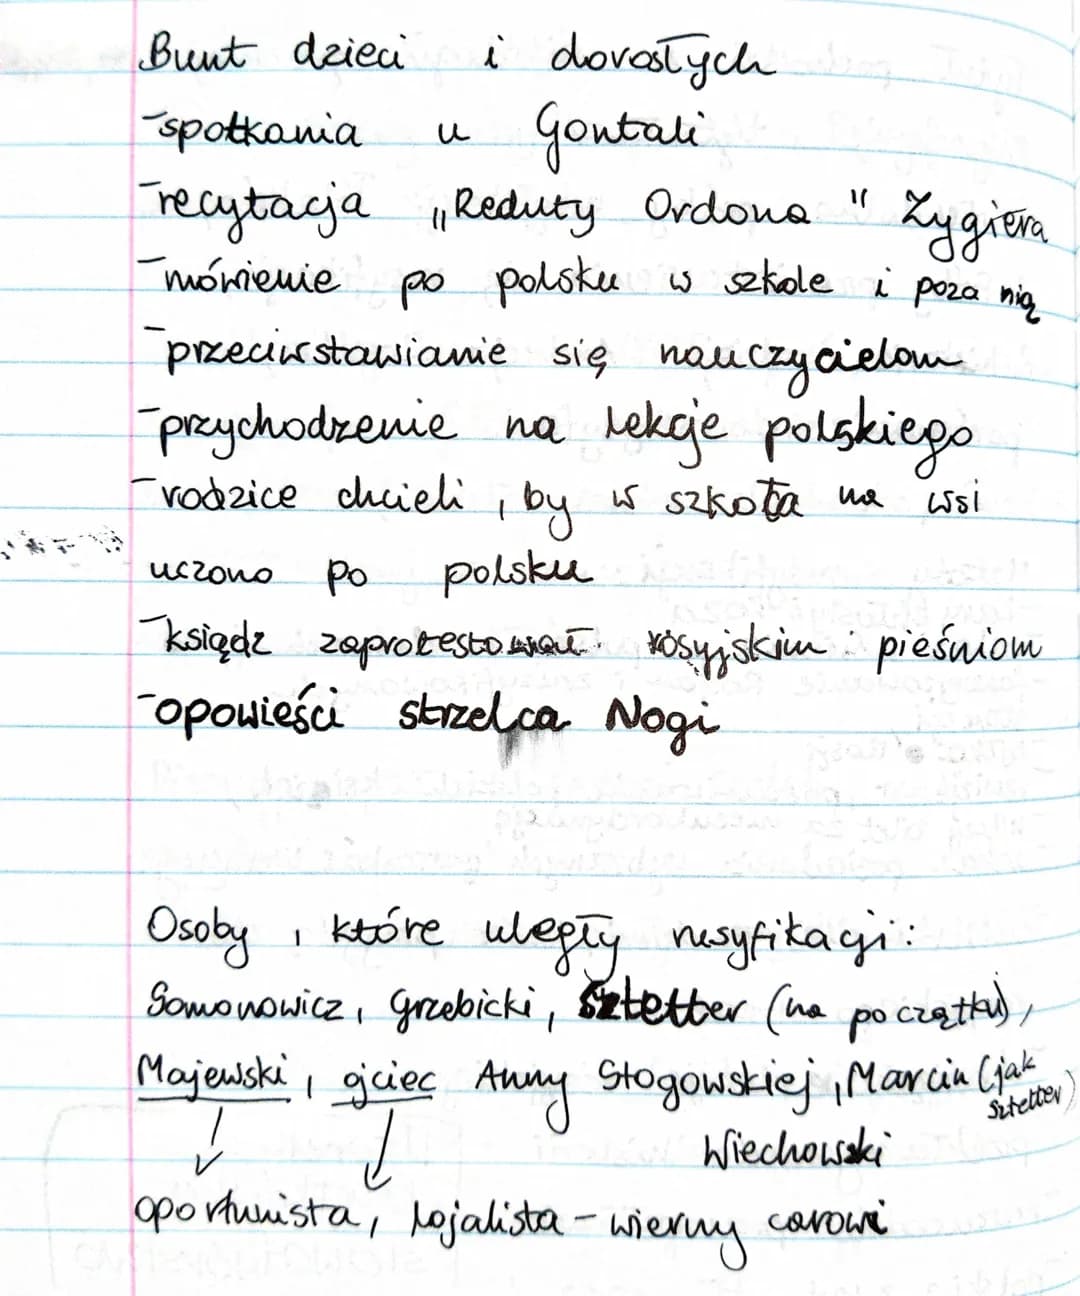 Bunt dzieci i dorosłych
-spotkania u Gontali
-recytacja „Reduty Ordona" Zygiera
-mówienie po polsku w szkole i poza nią
-przeciwstawianie się nauczycielom
-przychodzenie na lekcje polskiego
-rodzice chcieli, by w szkoła na wsi
uczono po polsku
-ksiądz zaprotestował rosyjskim pieśniom
-opowieści strzelca Nogi
Osoby, które uległy rusyfikacji:
Somonowicz, Grzebicki, Sztetter (na początku),
Majewski, ojciec Anny Stogowskiej, Marcin (jak
Sztetter)
Wiechowski
oportunista, lojalista - wierny carowi